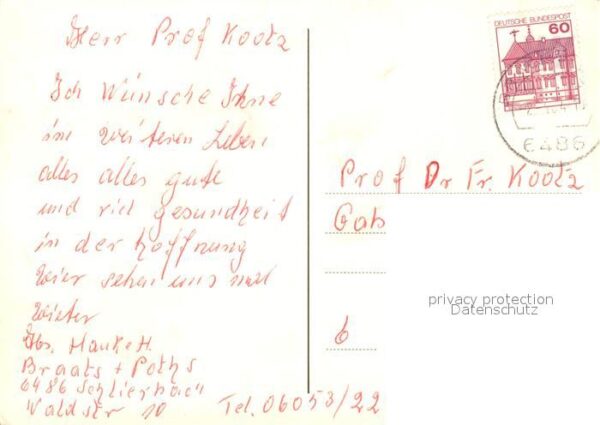 Herr Prof Kootz
Ich Wünsche Ihne
im weiteren Leben
alles alles gute
und viel gesundheit
in der hoffnung
wier sehen uns mal
wieter
Hanke H.
Braats + Poths
6486 Schlierbach
Waldstr 10 Tel. 06053/22
DEUTSCHE BUNDESPOST
60
6486
Prof Dr Fr. Kootz
6
privacy protection
Datenschutz